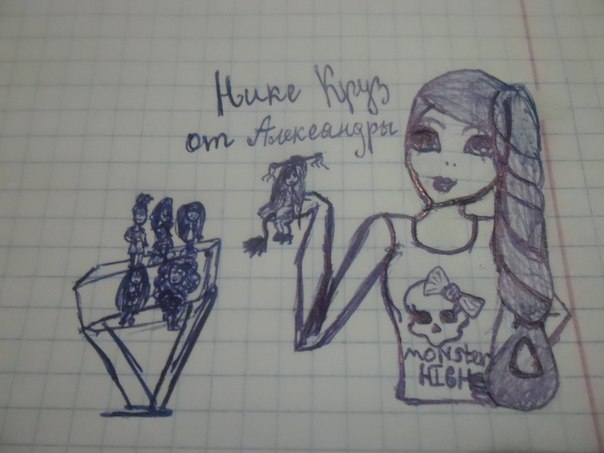 Нике Круз
от Александры
MONSter
HIGH